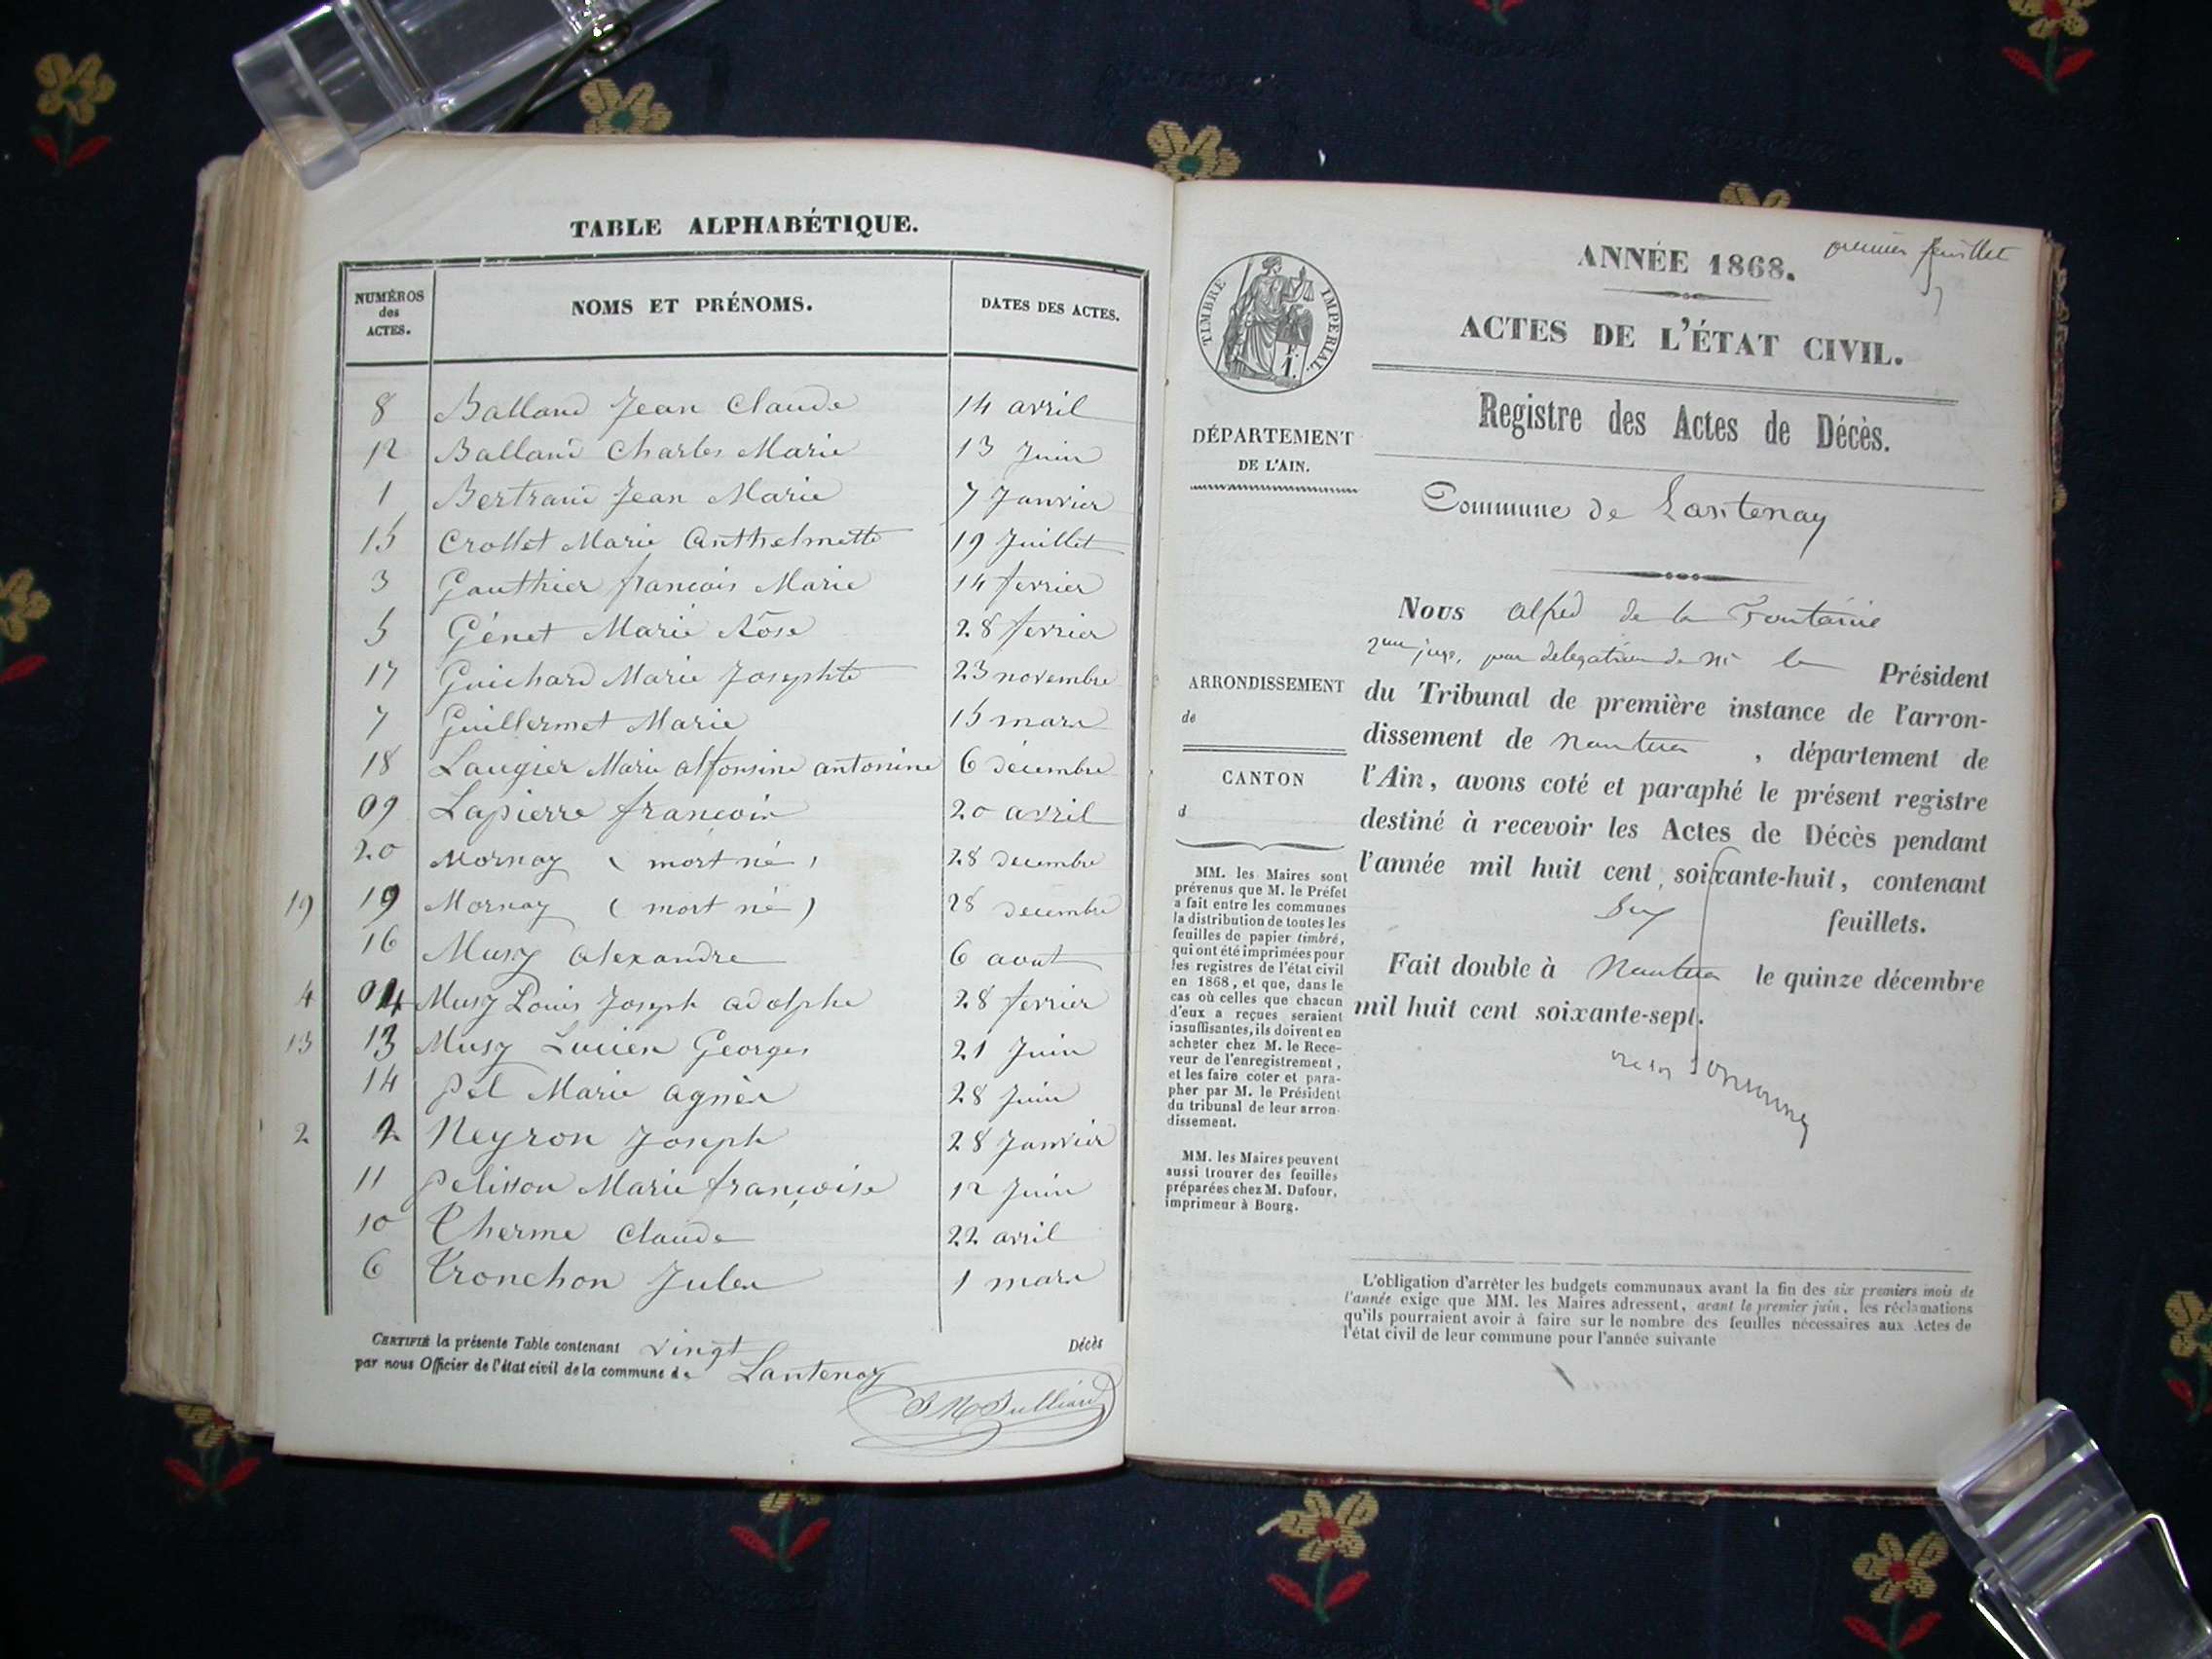 TABLE ALPHABÉTIQUE.
NUMÉROS des ACTES. NOMS ET PRÉNOMS. DATES DES ACTES.
8 Balland Jean Claude 14 avril
12 Balland Charles Marie 13 Juin
1 Bertrand Jean Marie 7 Janvier
15 Crollet Marie Anthelmette 19 Juillet
3 Gauthier francois Marie 14 fevrier
5 Génet Marie Rose 28 fevrier
17 Guichard Marie Josephte 23 novembre
7 Guillermet Marie 15 mars
18 Laugier Marie alfonsine antonine 6 décembre
09 Lapierre francois 20 avril
20 Mornay ( mort né ) 28 decembre
19 19 Mornay ( mort né ) 28 decembre
16 Musy alexandre 6 aout
4 04 Musy Louis Joseph adolphe 28 fevrier
13 13 Musy Lucien Georges 21 Juin
14 Pel Marie agnès 28 Juin
2 2 Neyron Joseph 28 Janvier
11 Pelisson Marie françoise 12 Juin
10 Therme Claude 22 avril
6 Tronchon Jules 1 mars
CERTIFIÉ la présente Table contenant vingt Décès
par nous Officier de l'état civil de la commune de Lantenay
premier feuillet
ANNÉE 1868.
ACTES DE L'ÉTAT CIVIL.
Registre des Actes de Décès.
Commune de Lantenay
TIMBRE IMPÉRIAL.
1.
DÉPARTEMENT
DE L'AIN.
ARRONDISSEMENT
de
CANTON
d
MM. les Maires sont
prévenus que M. le Préfet
a fait entre les communes
la distribution de toutes les
feuilles de papier timbré,
qui ont été imprimées pour
les registres de l'état civil
en 1868, et que, dans le
cas où celles que chacun
d'eux a reçues seraient
insuffisantes, ils doivent en
acheter chez M. le Rece-
veur de l'enregistrement,
et les faire coter et para-
pher par M. le Président
du tribunal de leur arron-
dissement.
MM. les Maires peuvent
aussi trouver des feuilles
préparées chez M. Dufour,
imprimeur à Bourg.
Nous alfred de la Fontaine
juge, par delegation de Mr le Président
du Tribunal de première instance de l'arron-
dissement de nantua , département de
l'Ain, avons coté et paraphé le présent registre
destiné à recevoir les Actes de Décès pendant
l'année mil huit cent soixante-huit, contenant
Six feuillets.
Fait double à Nantua le quinze décembre
mil huit cent soixante-sept.
L'obligation d'arrêter les budgets communaux avant la fin des six premiers mois de
l'année exige que MM. les Maires adressent, avant le premier juin, les réclamations
qu'ils pourraient avoir à faire sur le nombre des feuilles nécessaires aux Actes de
l'état civil de leur commune pour l'année suivante